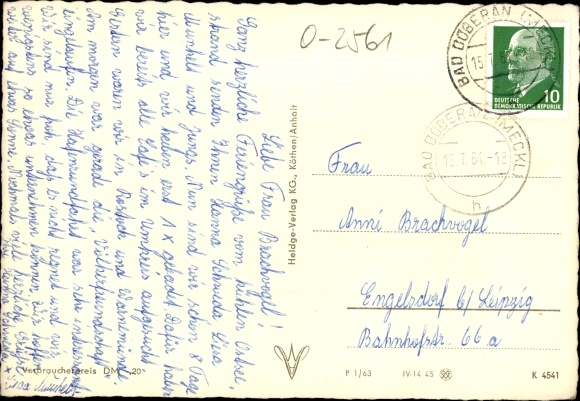 O-2561
BAD DOBERAN (MECKL)
15.7.64
DEUTSCHE
DEMOKRATISCHE REPUBLIK
10
BAD DOBERAN (MECKL)
15.7.64.-18
h
Liebe Frau Brachvogel!
Ganz herzliche Feriengrüße vom kühlen Ostsee-
strand senden Ihnen Hanna Schwede, Lisa
Munkelt und Jungs. Nun sind wir schon 8 Tage
hier und wir haben erst 1x gebadet. Dafür haben
wir bereits alle Cafe's im Umkreis aufgesucht.
Gestern waren wir in Rostock und Warnemünde.
Am morgen war gerade die „Völkerfreundschaft"
eingelaufen. Die Hafenrundfahrt war sehr interessant.
Wir sind nur froh, daß es nicht regnet und wir
wenigstens so etwas unternehmen können. Wir hoffen
auf Sonne. Nochmals viel herzliche Grüße
Ihre Hanna Schwede
Lisa Munkelt
Heldge-Verlag KG., Köthen/Anhalt
Frau
Anni Brachvogel
Engelsdorf b/ Leipzig
Bahnhofstr. 66 a
Verbraucherpreis DM „20"
P 1/63 IV-14-45 K 4541